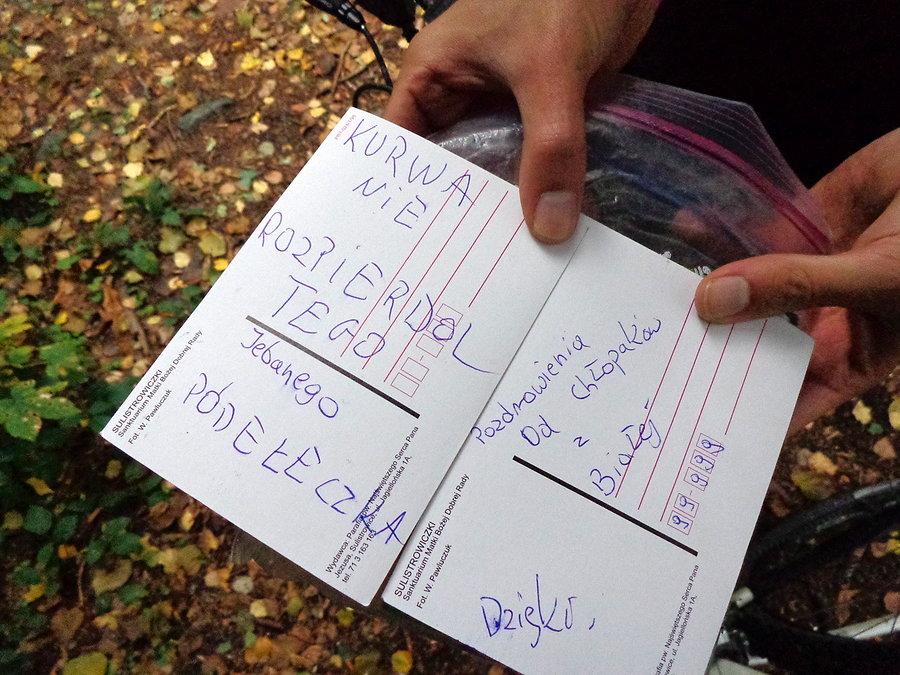 KURWA
NIE
ROZPIERDOL
TEGO
Jebanego
PÓDEŁECZKA
SULISTROWICZKI
Sanktuarium Matki Bożej Dobrej Rady
Fot. W. Pawluczuk
Wydawca: Parafia pw. Najświętszego Serca Pana
Jezusa, Sulistrowice, ul. Jagiellońska 1A,
tel. 71 3 163 163
Pozdrowienia
Od chłopaków
z
Białej
99-999
Dzięku,
SULISTROWICZKI
Sanktuarium Matki Bożej Dobrej Rady
Fot. W. Pawluczuk
Parafia pw. Najświętszego Serca Pana
ul. Jagiellońska 1A,